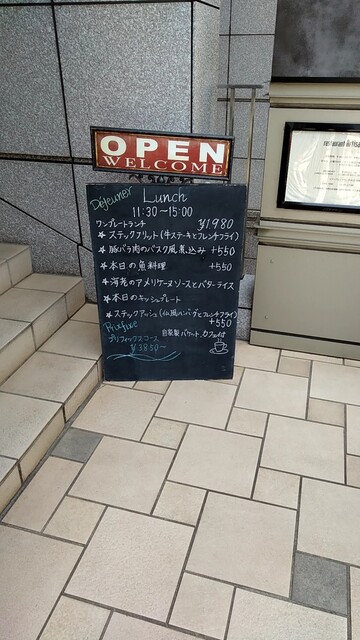 OPEN
WELCOME
Déjeuner Lunch
11:30~15:00
ワンプレートランチ ¥1980
★ステックフリット(牛ステーキとフレンチフライ)
★豚バラ肉のバスク風煮込み +550
★本日の魚料理 +550
★海老のアメリケーヌソースとバターライス
★本日のキッシュプレート
★ステックアッシュ(仏風ハンバーグとフレンチフライ)
+550
プリフィックスコース
¥3850~
自家製バケット、カフェ付
restaurant